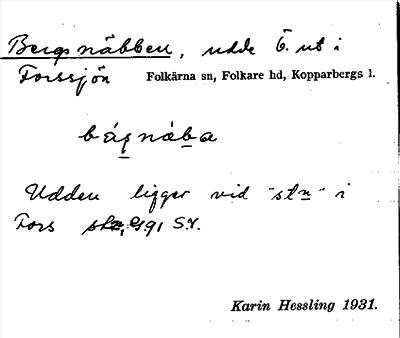 Bergsnäbben, udde Ö. ut i
Forssjön Folkärna sn, Folkare hd, Kopparbergs l.
Udden ligger vid "stn" i
Fors 91 S.V.
Karin Hessling 1931.